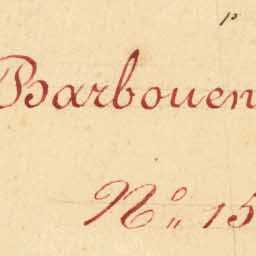 p
Barbouen
N.o 15